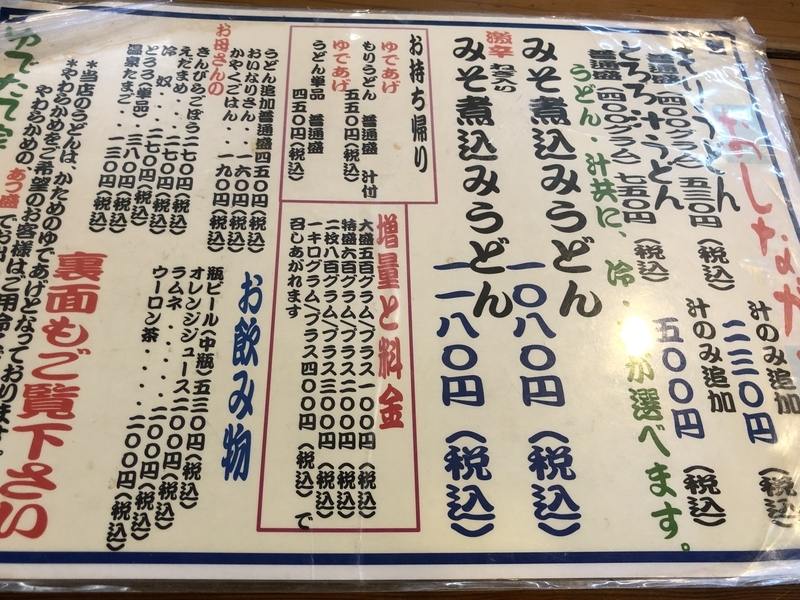 おしながき
もりうどん
普通盛(四〇〇グラム) 五三〇円(税込)
汁のみ追加 二三〇円(税込)
とろろ汁うどん
普通盛(四〇〇グラム) 七五〇円(税込)
汁のみ追加 五〇〇円(税込)
うどん・汁共に、冷・
が選べます。
みそ煮込みうどん 一〇八〇円(税込)
激辛
みそ煮込みうどん 一一八〇円(税込)
お持ち帰り
ゆであげ
もりうどん 普通盛 汁付
五五〇円(税込)
ゆであげ
うどん単品 普通盛
四五〇円(税込)
増量と料金
大盛五百グラムプラス一〇〇円(税込)
特盛六百グラムプラス二〇〇円(税込)
二枚八百グラムプラス三〇〇円(税込)
一キログラムプラス四〇〇円(税込)で
召しあがれます
うどん追加普通盛四五〇円(税込)
おいなりさん・・一六〇円(税込)
かやくごはん・・一九〇円(税込)
お母さんの
きんぴらごぼう二七〇円(税込)
えだまめ・・二七〇円(税込)
冷奴・・・二七〇円(税込)
とろろ(単品)三八〇円(税込)
温泉たまご・・一三〇円(税込)
お飲み物
瓶ビール(中瓶)五三〇円(税込)
オレンジジュース二〇〇円(税込)
ラムネ・・・・二〇〇円(税込)
ウーロン茶・・・・二〇〇円(税込)
*当店のうどんは、かためのゆであげとなっております。
*やわらかめをご希望のお客様は、ご用
やわらかめの あつ盛 でお出
裏面もご覧下さい
ゆでたて